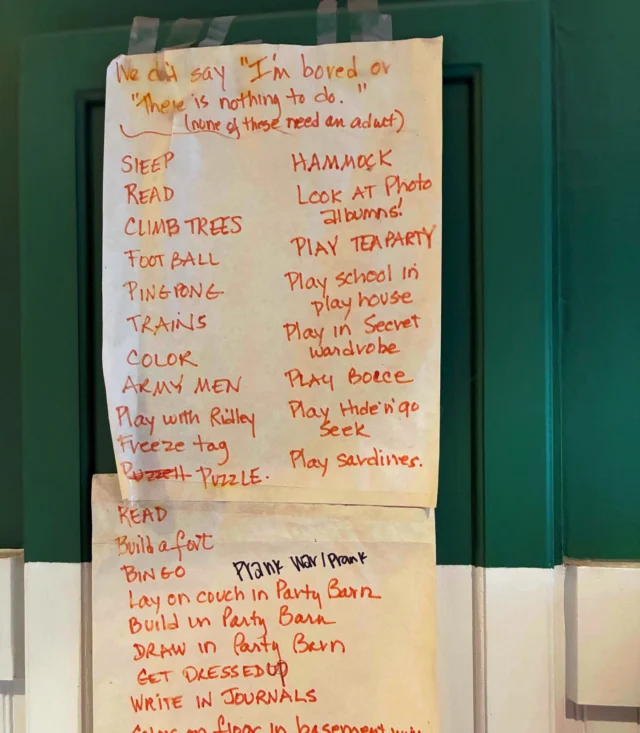 We don't say "I'm bored or
"There is nothing to do."
(none of these need an adult)
SLEEP
READ
CLIMB TREES
FOOTBALL
PINGPONG
TRAINS
COLOR
ARMY MEN
Play with Ridley
Freeze tag
PUZZLE.
HAMMOCK
LOOK AT Photo
albumns!
PLAY TEAPARTY
Play school in
play house
Play in Secret
wardrobe
PLAY BOCCE
Play Hide'n'go
Seek
Play sardines.
READ
Build a fort
BINGO
Prank War / Prank
Lay on couch in Party Barn
Build in Party Barn
DRAW in Party Barn
GET DRESSED UP
WRITE IN JOURNALS
on floor in basement